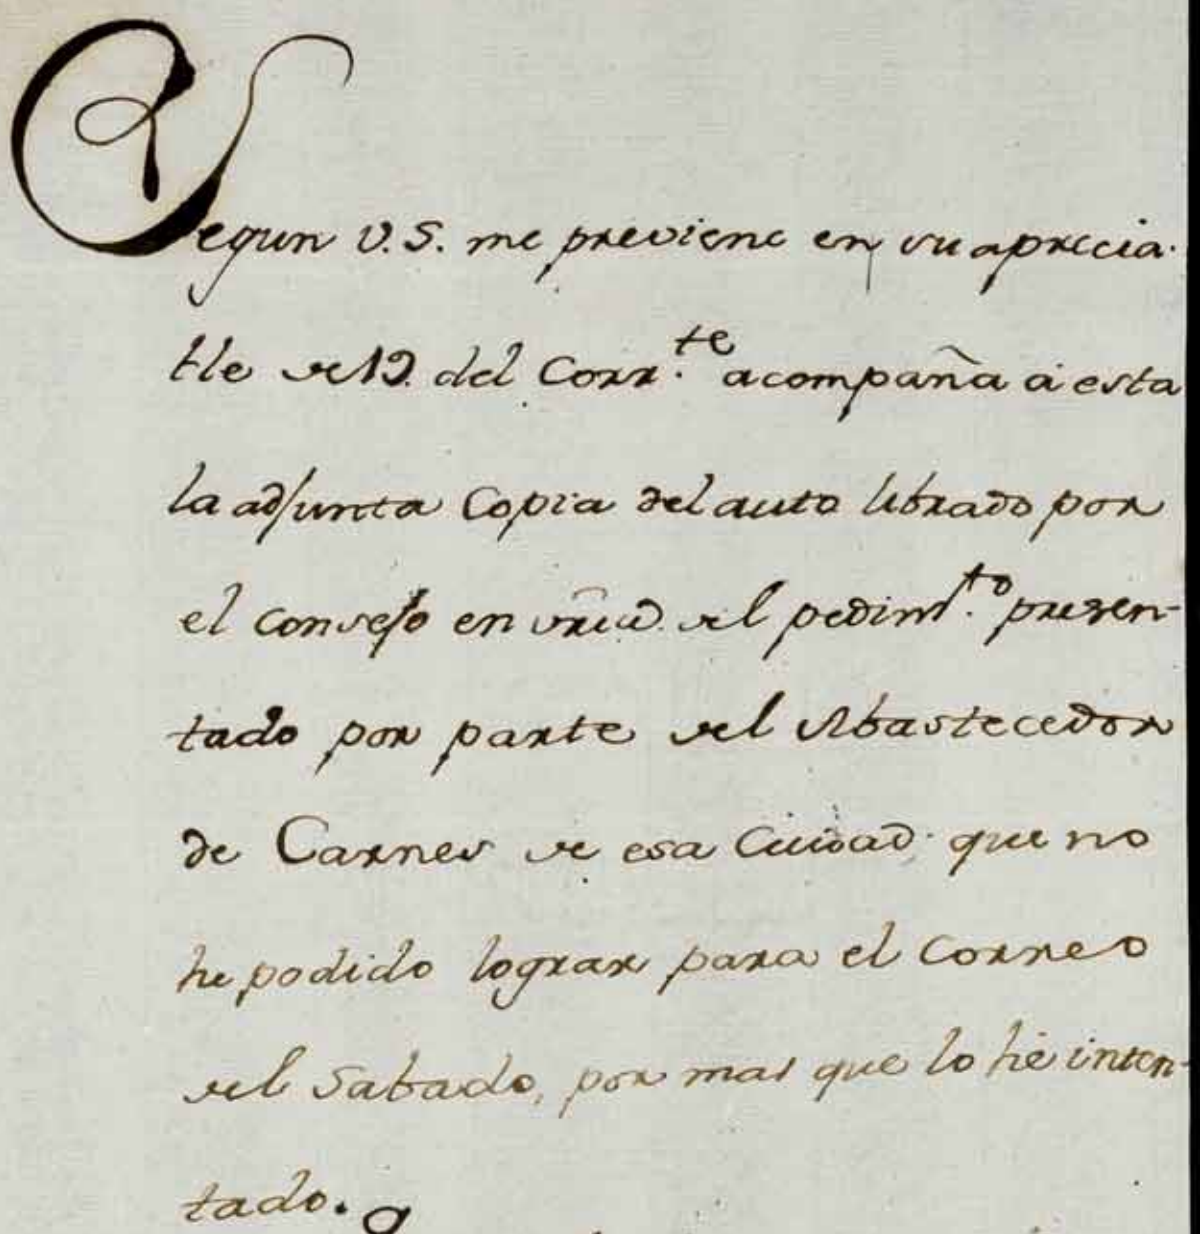 Segun V.S. me previene en su aprecia-
ble de 19. del Corr.te acompaña á esta
la adjunta Copia del auto librado por
el consejo en del pedim.to presen-
tado por parte del Abastecedor
de Carnes de esa Ciudad que no
he podido lograr para el Correo
del Sabado, por mas que lo hé inten-
tado.